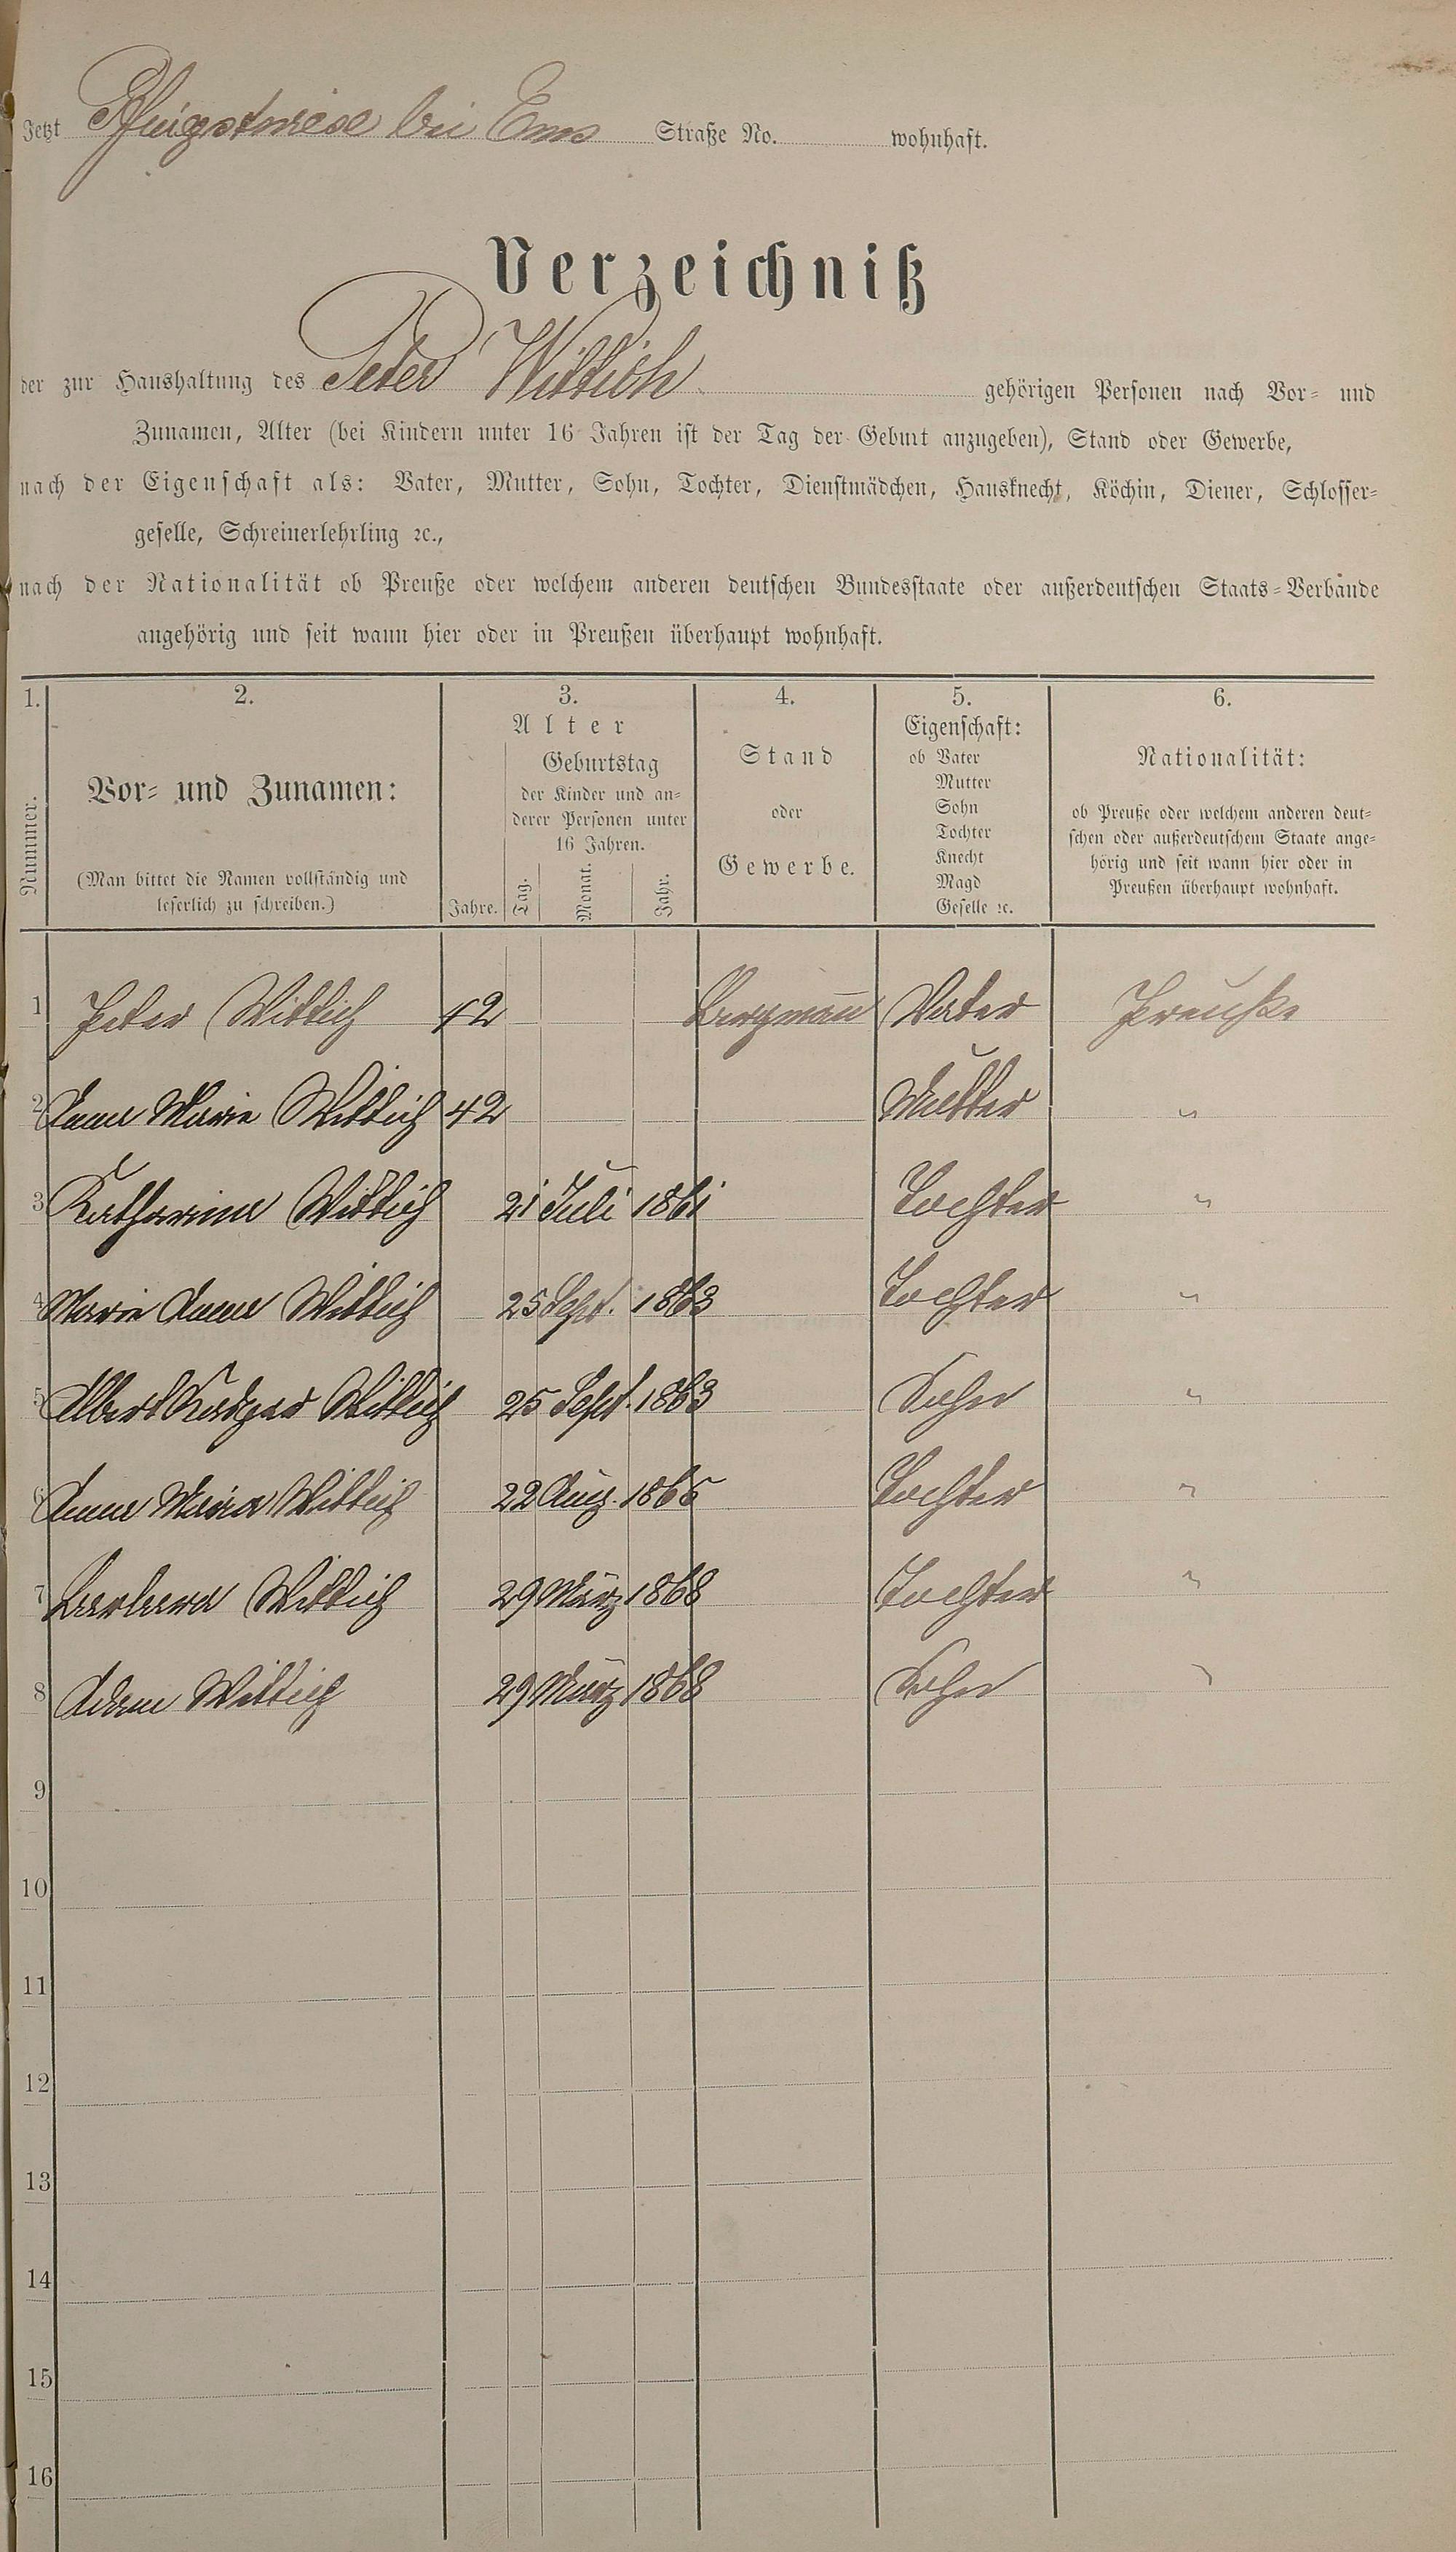 Jetzt Pfingstwiese bei Ems Straße No. wohnhaft.
Verzeichniß
der zur Haushaltung des Peter Wittich gehörigen Personen nach Vor- und
Zunamen, Alter (bei Kindern unter 16 Jahren ist der Tag der Geburt anzugeben), Stand oder Gewerbe,
nach der Eigenschaft als: Vater, Mutter, Sohn, Tochter, Dienstmädchen, Hausknecht, Köchin, Diener, Schlosser-
geselle, Schreinerlehrling ꝛc.,
nach der Nationalität ob Preuße oder welchem anderen deutschen Bundesstaate oder außerdeutschen Staats-Verbände
angehörig und seit wann hier oder in Preußen überhaupt wohnhaft.
1. 2. 3. 4. 5. 6.
Nummer.
Vor- und Zunamen:
(Man bittet die Namen vollständig und
leserlich zu schreiben.)
Alter
Jahre.
Geburtstag
der Kinder und an-
derer Personen unter
16 Jahren.
Tag. Monat. Jahr.
Stand
oder
Gewerbe.
Eigenschaft:
ob Vater
Mutter
Sohn
Tochter
Knecht
Magd
Geselle ꝛc.
Nationalität:
ob Preuße oder welchem anderen deut-
schen oder außerdeutschem Staate ange-
hörig und seit wann hier oder in
Preußen überhaupt wohnhaft.
1 Peter Wittich 42 Bergmann Vater Preuße
2 Anna Marie Wittich 42 Mutter "
3 Katharina Wittich 21 Juli 1861 Tochter "
4 Marie Anna Wittich 25 Sept. 1863 Tochter "
5 Albert Wittich 25 Sept. 1863 Sohn "
6 Anna Maria Wittich 22 Aug. 1865 Tochter "
7 Barbara Wittich 29 März 1868 Tochter "
8 Adam Wittich 29 März 1868 Sohn "
9
10
11
12
13
14
15
16